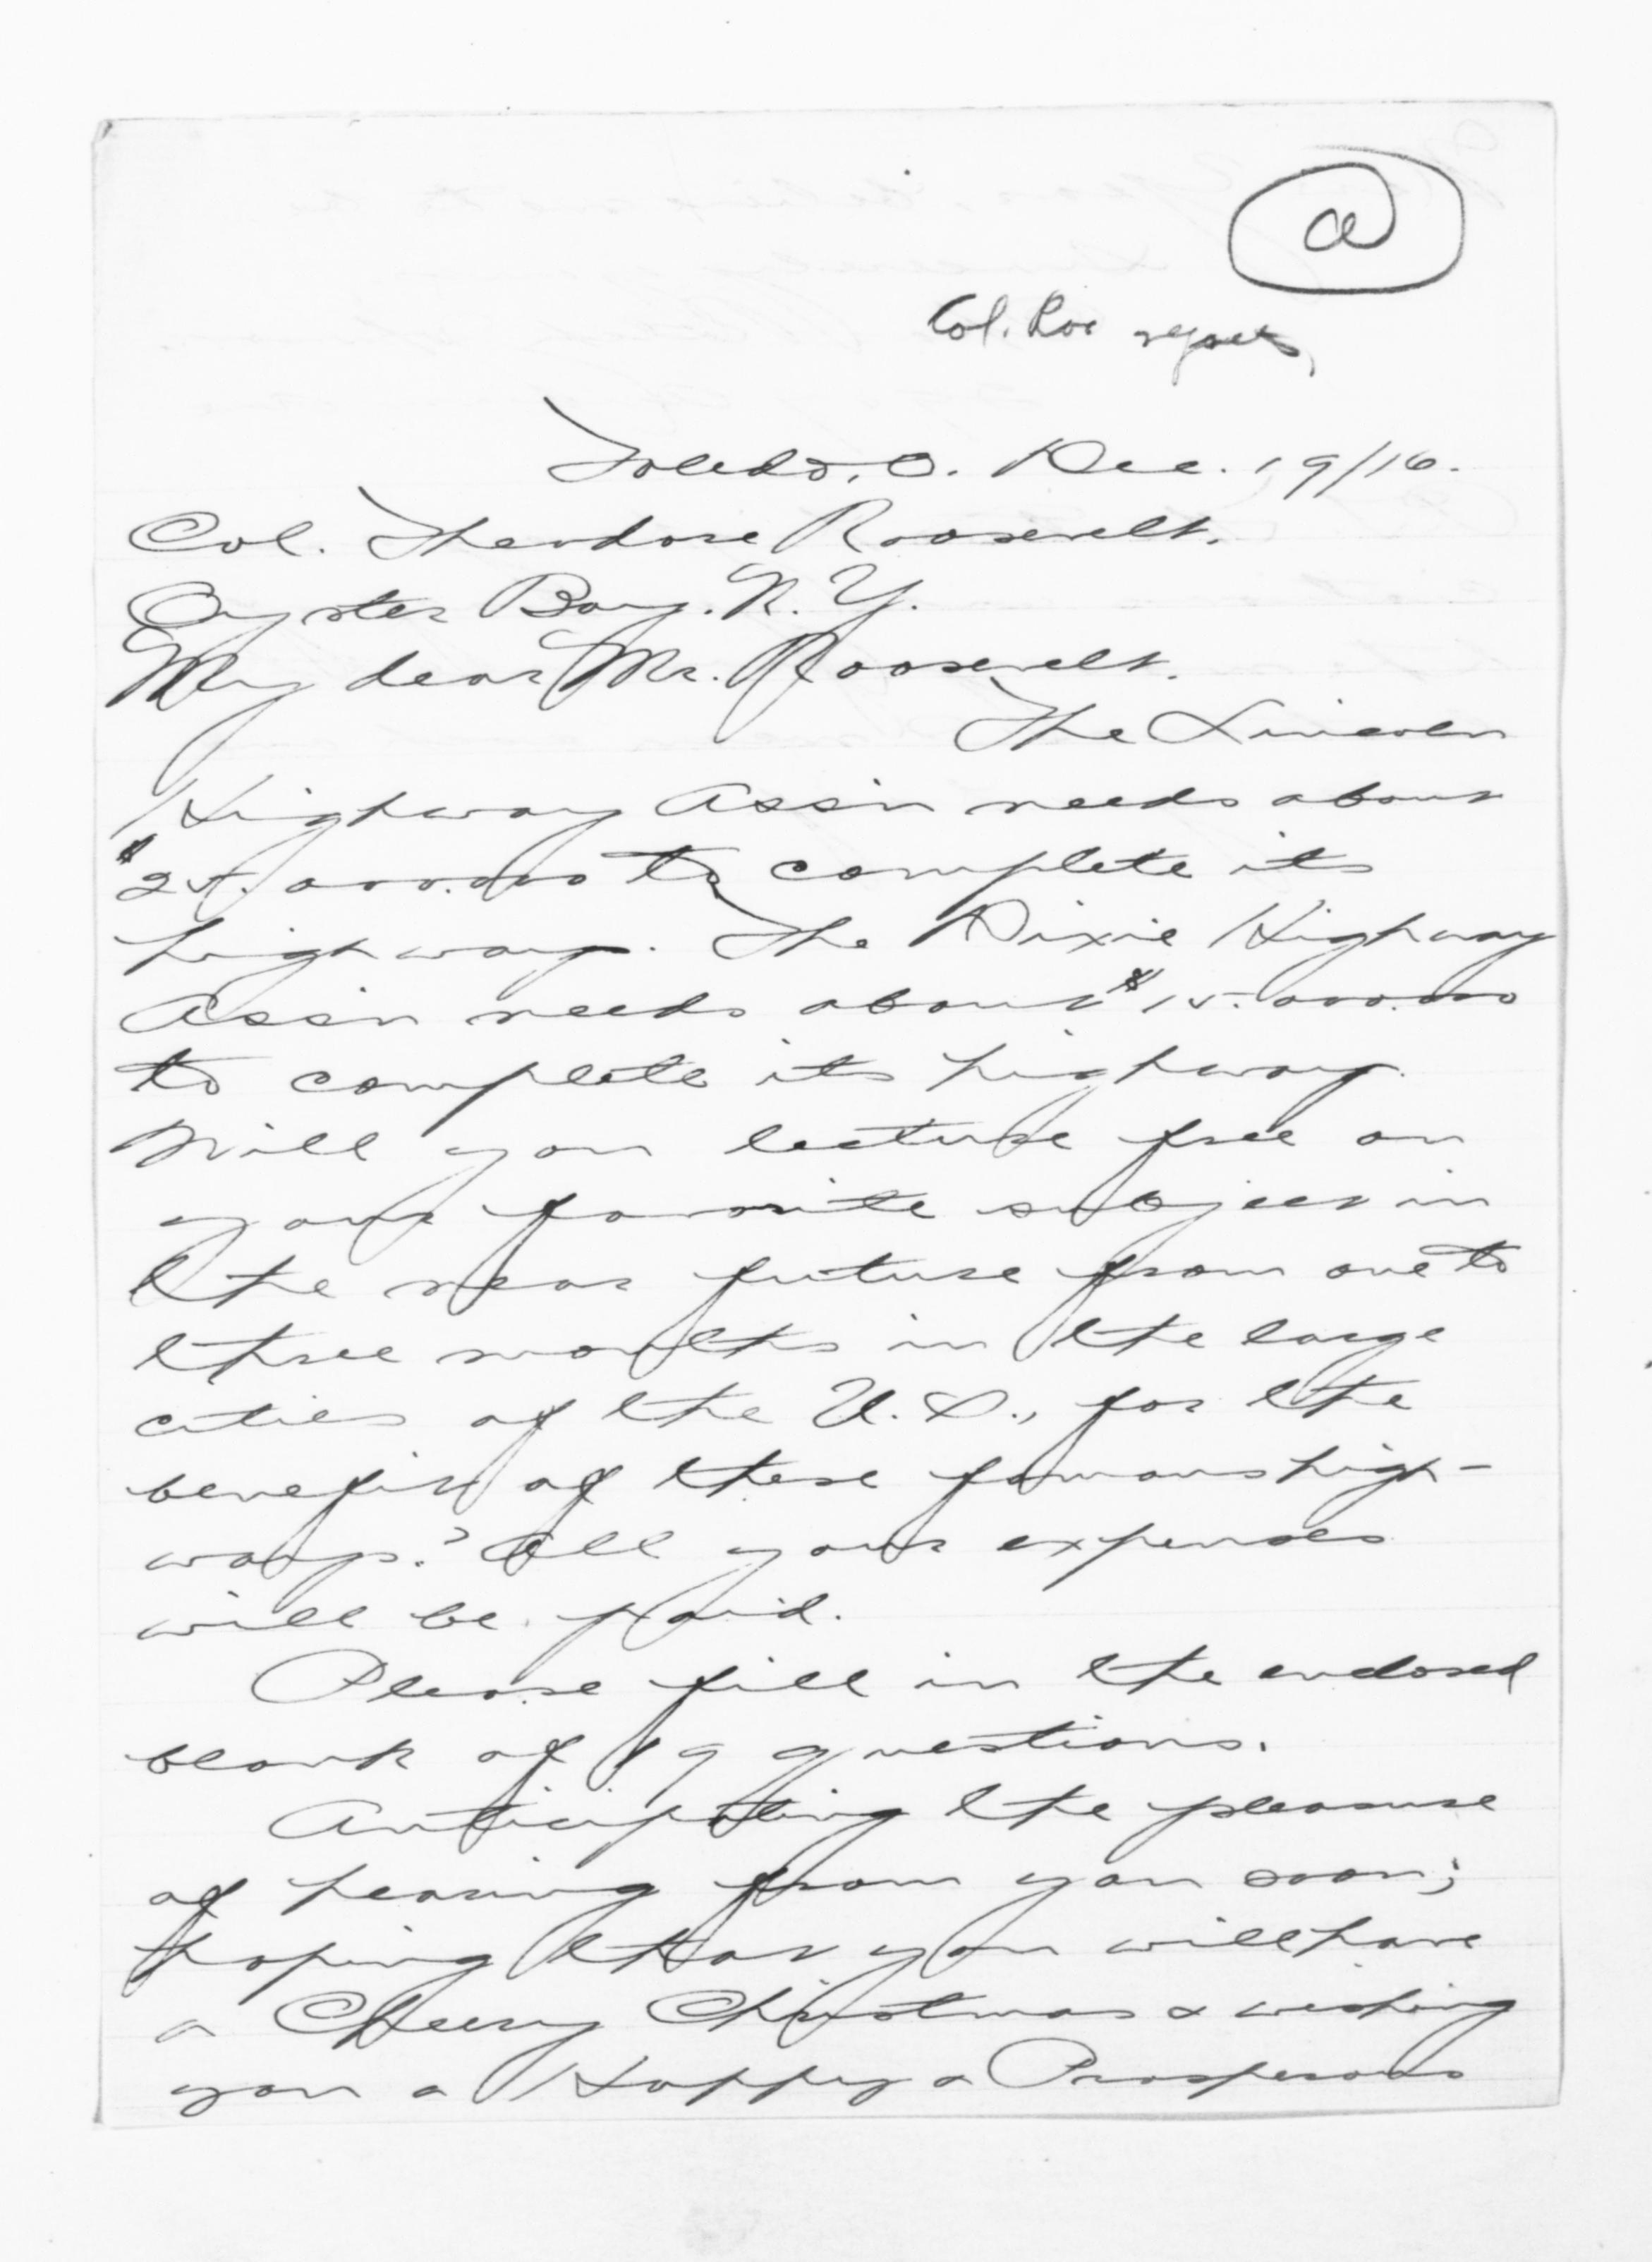 a
Col. Roo regrets
Toledo, O. Dec. 19/16.
Col. Theodore Roosevelt.
Oyster Bay. N. Y.
My dear Mr. Roosevelt.
The Lincoln
Highway Ass'n needs about
$25.000.000 to complete its
highway. The Dixie Highway
Ass'n needs about $15.000.000
to complete its highway.
Will you lecture free on
your favorite subject in
the near future from one to
three months in the large
cities of the U.S., for the
benefit of these famous high-
ways? All your expenses
will be paid.
Please fill in the enclosed
blank of 19 questions.
Anticipating the pleasure
of hearing from you soon;
hoping that you will have
a Cheery Christmas & wishing
you a Happy & Prosperous